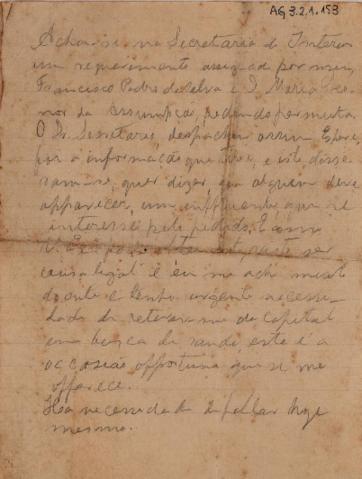 AG 3.2.1.153
Acha-se na Secretaria do Interior
um requerimento assignado por mim,
Francisco Pedro da Silva e D. Maria
da Assumpção, pedindo permuta
O Sr. Secretario, despachou assim Espere,
por a informação que tive, e isto disse
ram-me, quer dizer, que alguem deve
apparecer, um influente, que se
interesse pelo pedido. E como
V. Exª
causa legal e eu me acho muito
doente e tenho urgente necessi
dade de retirar-me da capital
em busca de saude este é a
occasião opportuna que se me
offerece.
Ha necessidade fallar hoje
mesmo.